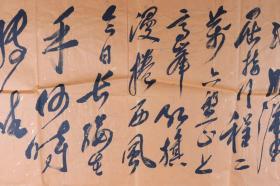 屈指行程二
萬六盤山上
高峰紅旗
漫捲西風
今日長纓在
手何時
縛住